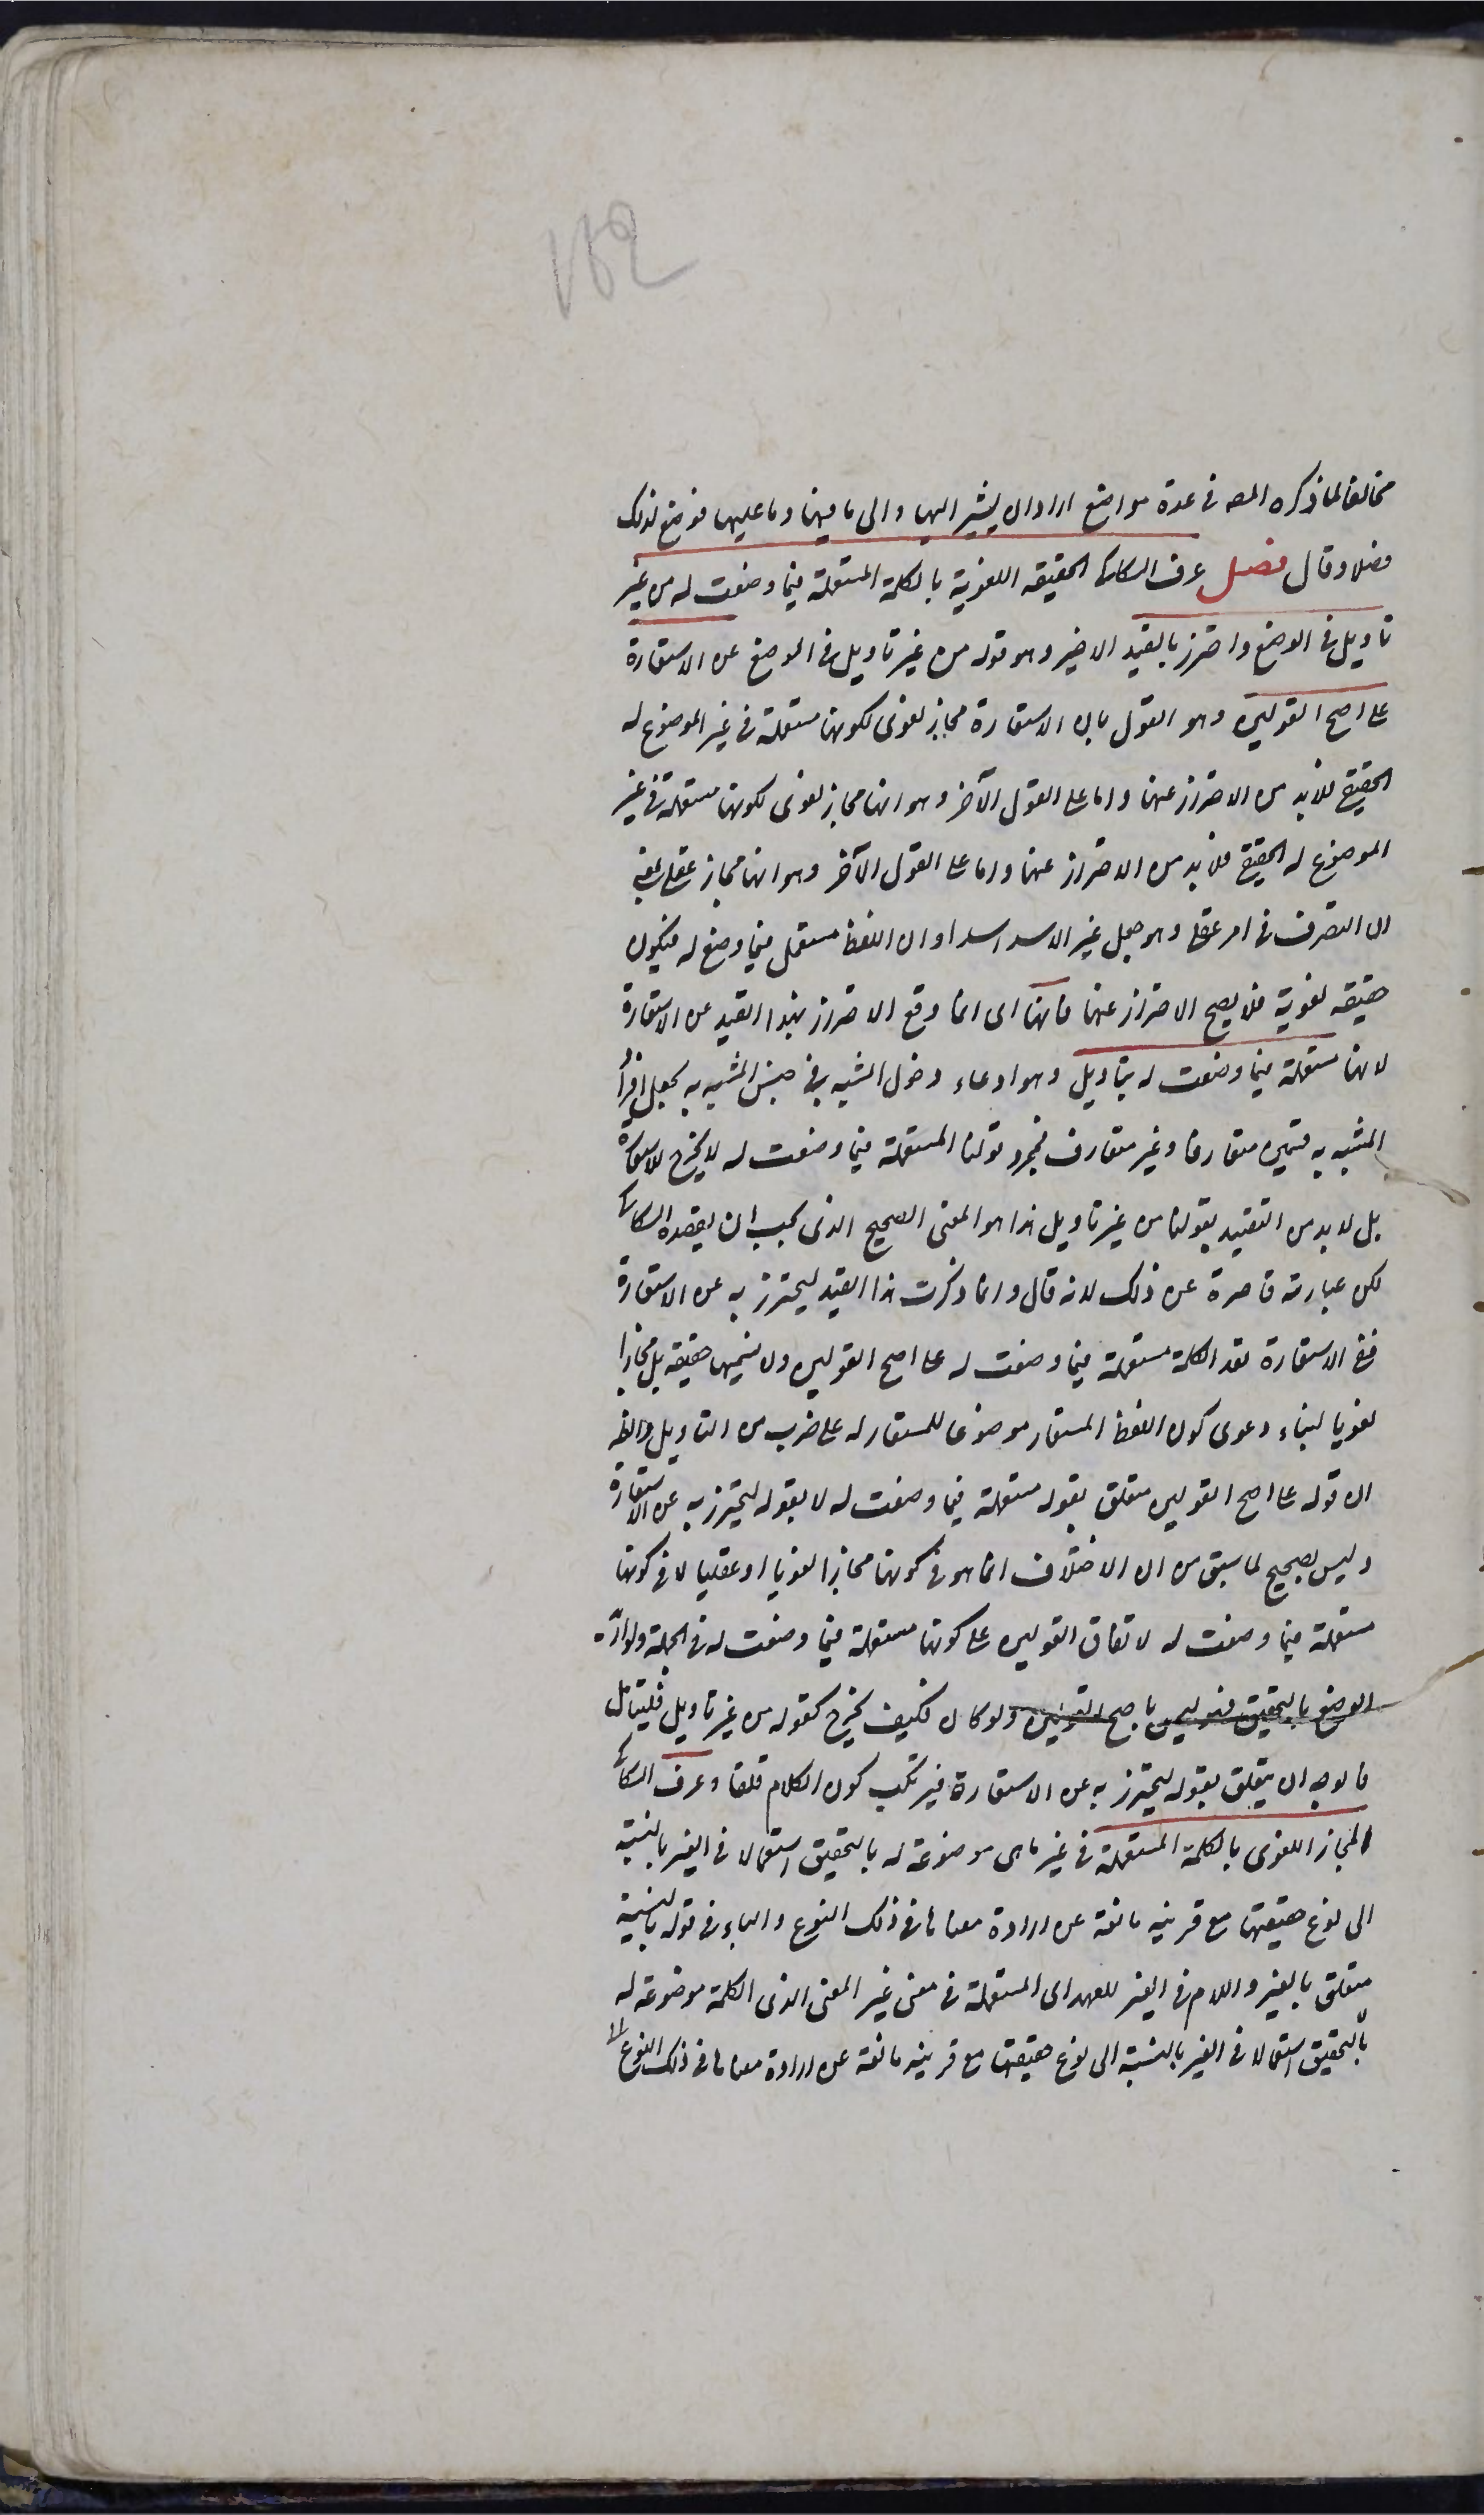 ١٥٢
مخالفا لما ذكره المصه فى عدة مواضع اراد ان يشير اليها والى ما فيها وما عليها فوضع لذلك
فصلا وقال فصل عرف السكاكى الحقيقه اللغوية بالكلمة المستعملة فيما وضعت له من غير
تاويل فى الوضع واحترز بالقيد الاخير وهو قوله من غير تاويل فى الوضع عن الاستعارة
على اصح القولين وهو القول بان الاستعارة مجاز لغوى لكونها مستعملة فى غير الموضوع له
الحقيقى فلا بد من الاحتراز عنها واما على القول الآخر وهو انها مجاز لغوى لكونها مستعملة فى غير
الموضوع له الحقيقى فلا بد من الاحتراز عنها واما على القول الآخر وهو انها مجاز عقلى بمعنى
ان التصرف فى امر عقلى وهو جعل غير الاسد اسدا وان اللفظ مستعمل فيما وضع له فيكون
حقيقه لغوية فلا يصح الاحتراز عنها فانها اى انما وقع الاحتراز بهذا القيد عن الاستعارة
لانها مستعملة فيما وضعت له بتاويل وهو ادعاء دخول المشبه فى جنس المشبه به بجعل افراد
المشبه به قسمين متعارفا وغير متعارف فمجرد قولنا المستعملة فيما وضعت له لا يخرج الاستعارة
بل لا بد من التقييد بقولنا من غير تاويل هذا هو المعنى الصحيح الذى يجب ان يقصده السكاكى
لكن عبارته قاصرة عن ذلك لانه قال وانما ذكرت هذا القيد ليحترز به عن الاستعارة
ففى الاستعارة تعد الكلمة مستعملة فيما وضعت له على اصح القولين ولا نسميها حقيقه بل مجازا
لغويا لبناء دعوى كون اللفظ المستعار موضوعا للمستعار له على ضرب من التاويل والظه
ان قوله على اصح القولين متعلق بقوله مستعملة فيما وضعت له لا بقوله ليحترز به عن الاستعارة
وليس بصحيح لما سبق من ان الاختلاف انما هو فى كونها مجازا لغويا او عقليا لا فى كونها
مستعملة فيما وضعت له لاتفاق القولين على كونها مستعملة فيما وضعت له فى الجملة ولو اراد
الوضع بالتحقيق فهو ليس باصح القولين ولو كان فكيف يخرج كقوله من غير تاويل فليتامل
فالوجه ان يتعلق بقوله ليحترز به عن الاستعارة فيرتكب كون الكلام قلقا وعرف السكاكى
المجاز اللغوى بالكلمة المستعملة فى غير ما هى موضوعة له بالتحقيق استعمالا فى الغير بالنسبة
الى نوع حقيقتها مع قرينه مانعة عن ارادة معناها فى ذلك النوع والباء فى قوله بالنسبة
متعلق بالغير واللام فى الغير للعهد اى المستعملة فى معنى غير المعنى الذى الكلمة موضوعة له
بالتحقيق استعمالا فى الغير بالنسبة الى نوع حقيقتها مع قرينه مانعة عن ارادة معناها فى ذلك النوع